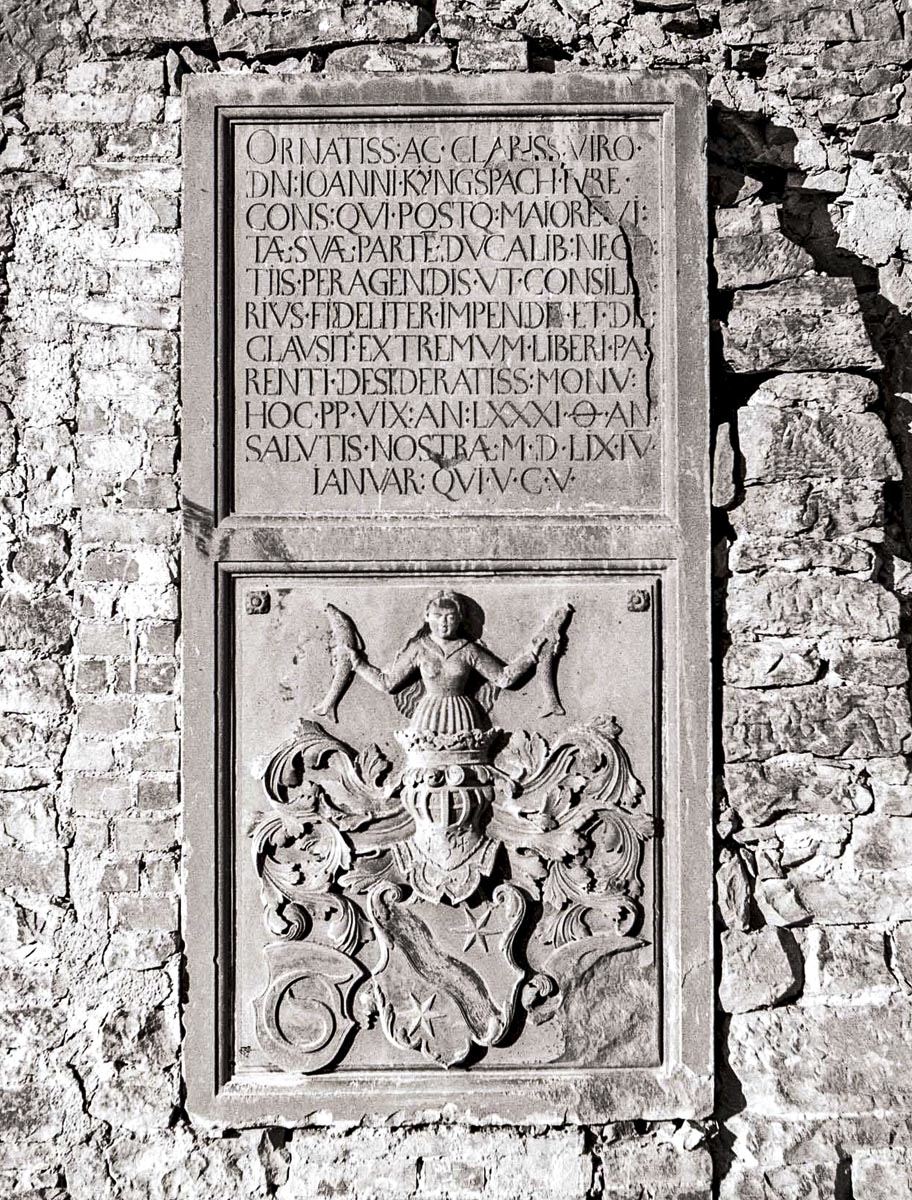 ORNATISS·AC·CLARISS·VIRO·
DN:IOANNI·KŸNGSPACH·IVRE·
CONS:QVI·POSTQ:MAIOREˉ·VI:
TÆ·SVÆ·PARTĒ·DVCALIB·NEGO:
TIIS·PERAGENDIS·VT·CONSILIA
RIVS·FIDELITER·IMPENDE·ET·DIE:
CLAVSIT·EXTREMVM·LIBERI·PA:
RENTI·DESIDERATISS·MONV:
HOC·PP·VIX:AN·LXXXI·Θ·AN
SALVTIS·NOSTRÆ·M·D·LIX·IV·
IANVAR:QVI·V·C·V·